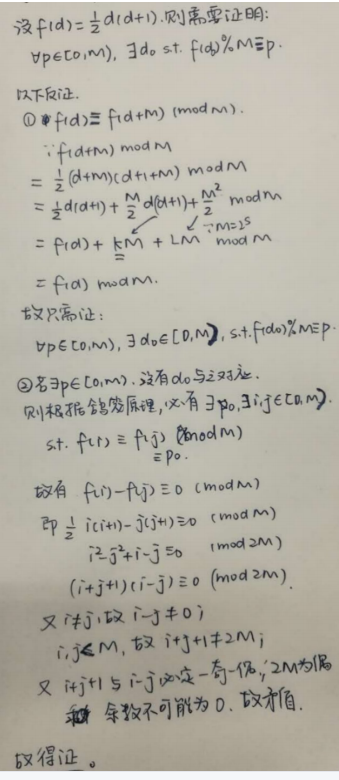 设 f(d)=½d(d+1).则需要证明:
∀p∈[0,M), ∃d₀ s.t. f(d₀)%M≡p.
以下反证.
① f(d)≡f(d+M) (mod M).
∵f(d+M) mod M
= ½(d+M)(d+1+M) mod M
= ½d(d+1)+M/2 d(d+1)+M²/2 mod M
= f(d)+kM+LM ∵M=2ˢ mod M
= f(d) mod M.
故只需证:
∀p∈[0,M), ∃d₀∈[0,M), s.t. f(d₀)%M≡p.
②若∃p∈[0,M).没有d₀与之对应.
则根据鸽笼原理,必有∃p₀,∃i,j∈[0,M).
s.t. f(i)≡f(j) (mod M)
≡p₀.
故有 f(i)-f(j)≡0 (mod M)
即 ½ i(i+1)-j(j+1)≡0 (mod M)
i²-j²+i-j≡0 (mod 2M)
(i+j+1)(i-j)≡0 (mod 2M)
又 i≠j,故 i-j≠0;
i,j<M, 故 i+j+1≠2M;
又 i+j+1 与 i-j 必定一奇一偶,2M为偶
余数不可能为0.故矛盾.
故得证。